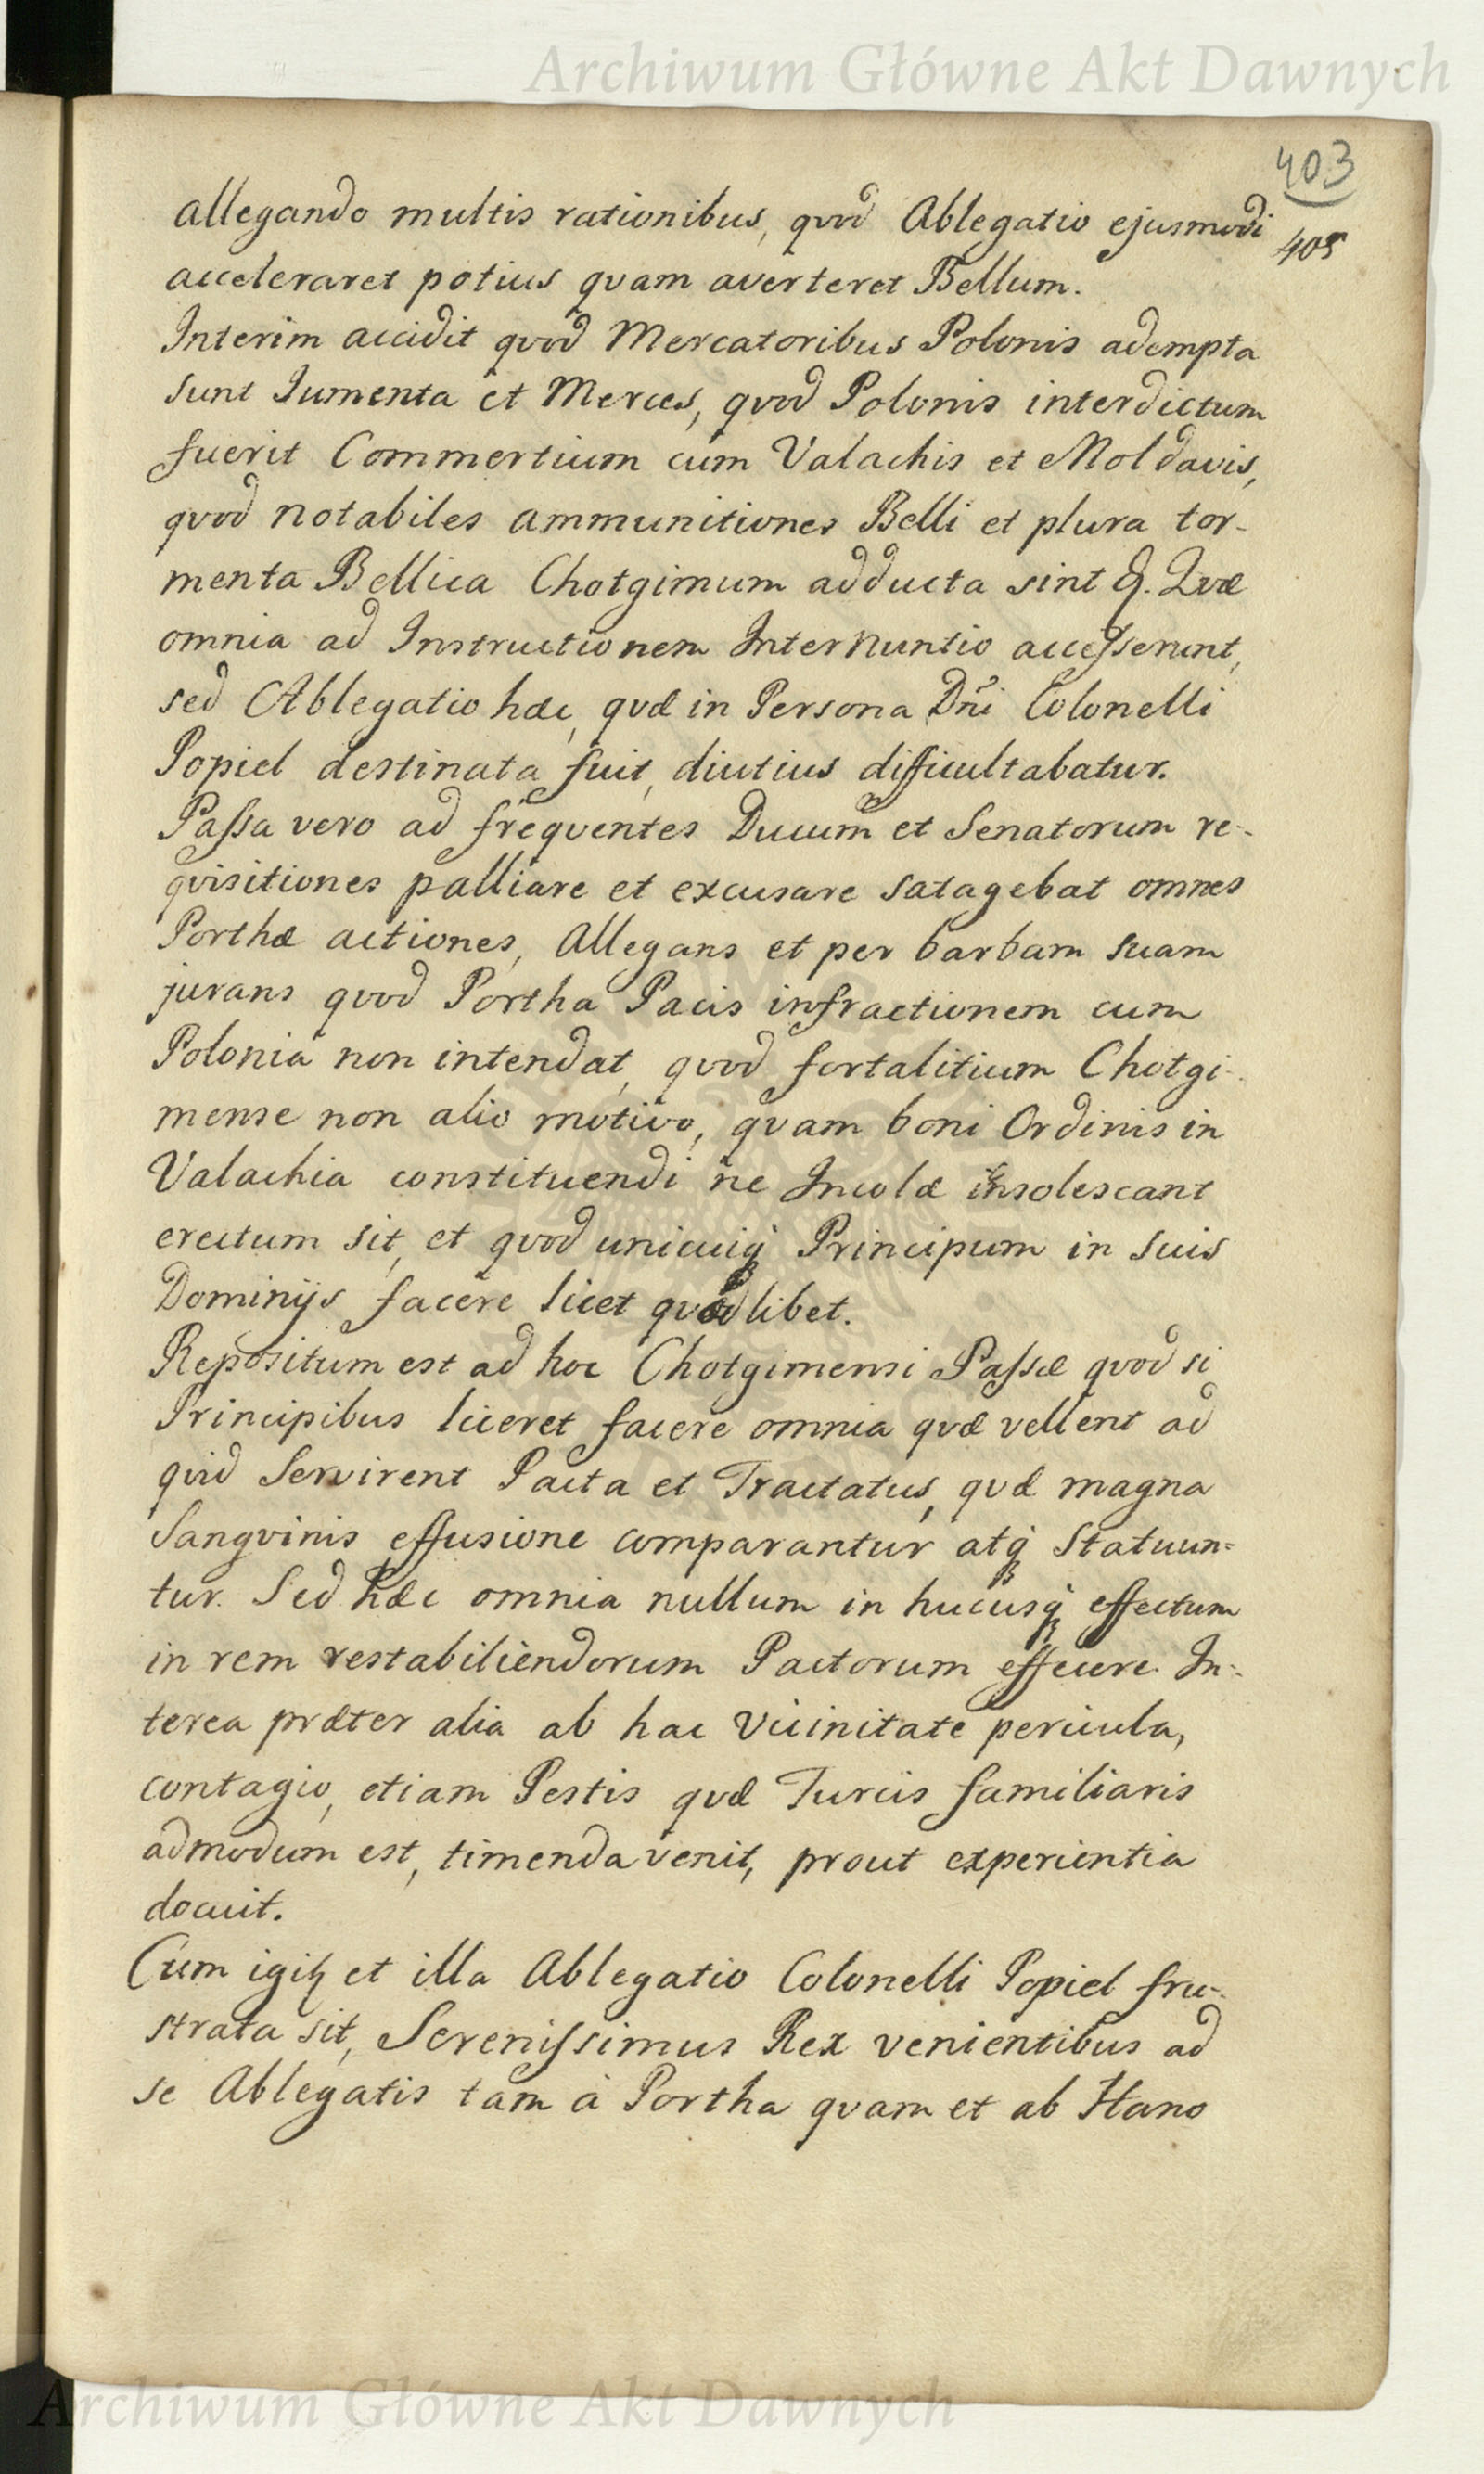 Archiwum Główne Akt Dawnych
403
405
allegando multis rationibus, qvod Ablegatio ejusmodi
acceleraret potius qvam averteret Bellum.
Interim accidit qvod Mercatoribus Polonis adempta
sunt Jumenta et Merces, qvod Polonis interdictum
fuerit Commertium cum Valachis et Moldavis,
qvod notabiles ammunitiones Belli et plura tor-
menta Bellica Chotgimum adducta sint &. Qvæ
omnia ad Instructionem Internuntio accesserunt,
sed Ablegatio hæc, qvæ in Persona Dñi Colonelli
Popiel destinata fuit, diutius difficultabatur.
Passa vero ad freqventes Ducum et Senatorum re-
qvisitiones palliare et excusare satagebat omnes
Porthæ actiones, Allegans et per barbam suam
jurans qvod Portha Pacis infractionem cum
Polonia non intendat, qvod fortalitium Chotgi-
mense non alio motivo, qvam boni Ordinis in
Valachia constituendi ne Incolæ insolescant
erectum sit, et qvod unicuiq Principum in suis
Dominijs facere licet qvodlibet.
Repositum est ad hoc Chotgimensi Passæ qvod si
Principibus liceret facere omnia qvæ vellent ad
qvid Servirent Pacta et Tractatus, qvæ magna
Sangvinis effusione comparantur atq Statuun=
tur. Sed hæc omnia nullum in hucusq effectum
in rem restabiliendorum Pactorum effecere. In-
terea præter alia ab hac Vicinitate pericula,
contagio, etiam Pestis qvæ Turcis familiaris
admodum est, timenda venit, prout experientia
docuit.
Cum igitʒ et illa Ablegatio Colonelli Popiel fru-
strata sit, Serenissimus Rex venientibus ad
se Ablegatis tam à Portha qvam et ab Hano
Archiwum Główne Akt Dawnych